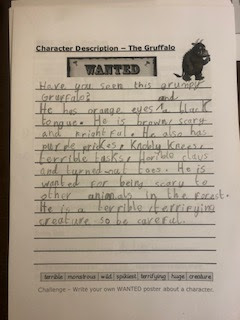 Character Description – The Gruffalo
WANTED
Have you seen this grumpy
Gruffalo? and
He has orange eyes black
tongue. He is brown, scary
and frightful. He also has
purple prickes, Knobly Knees,
terrible tasks, Horrible claws
and turned out toes. He is
wanted for being scary to
other animals in the forest.
He is a terrible terrifying
creature so be careful.
terrible monstrous wild spikiest terrifying huge creature
Challenge – Write your own WANTED poster about a character.